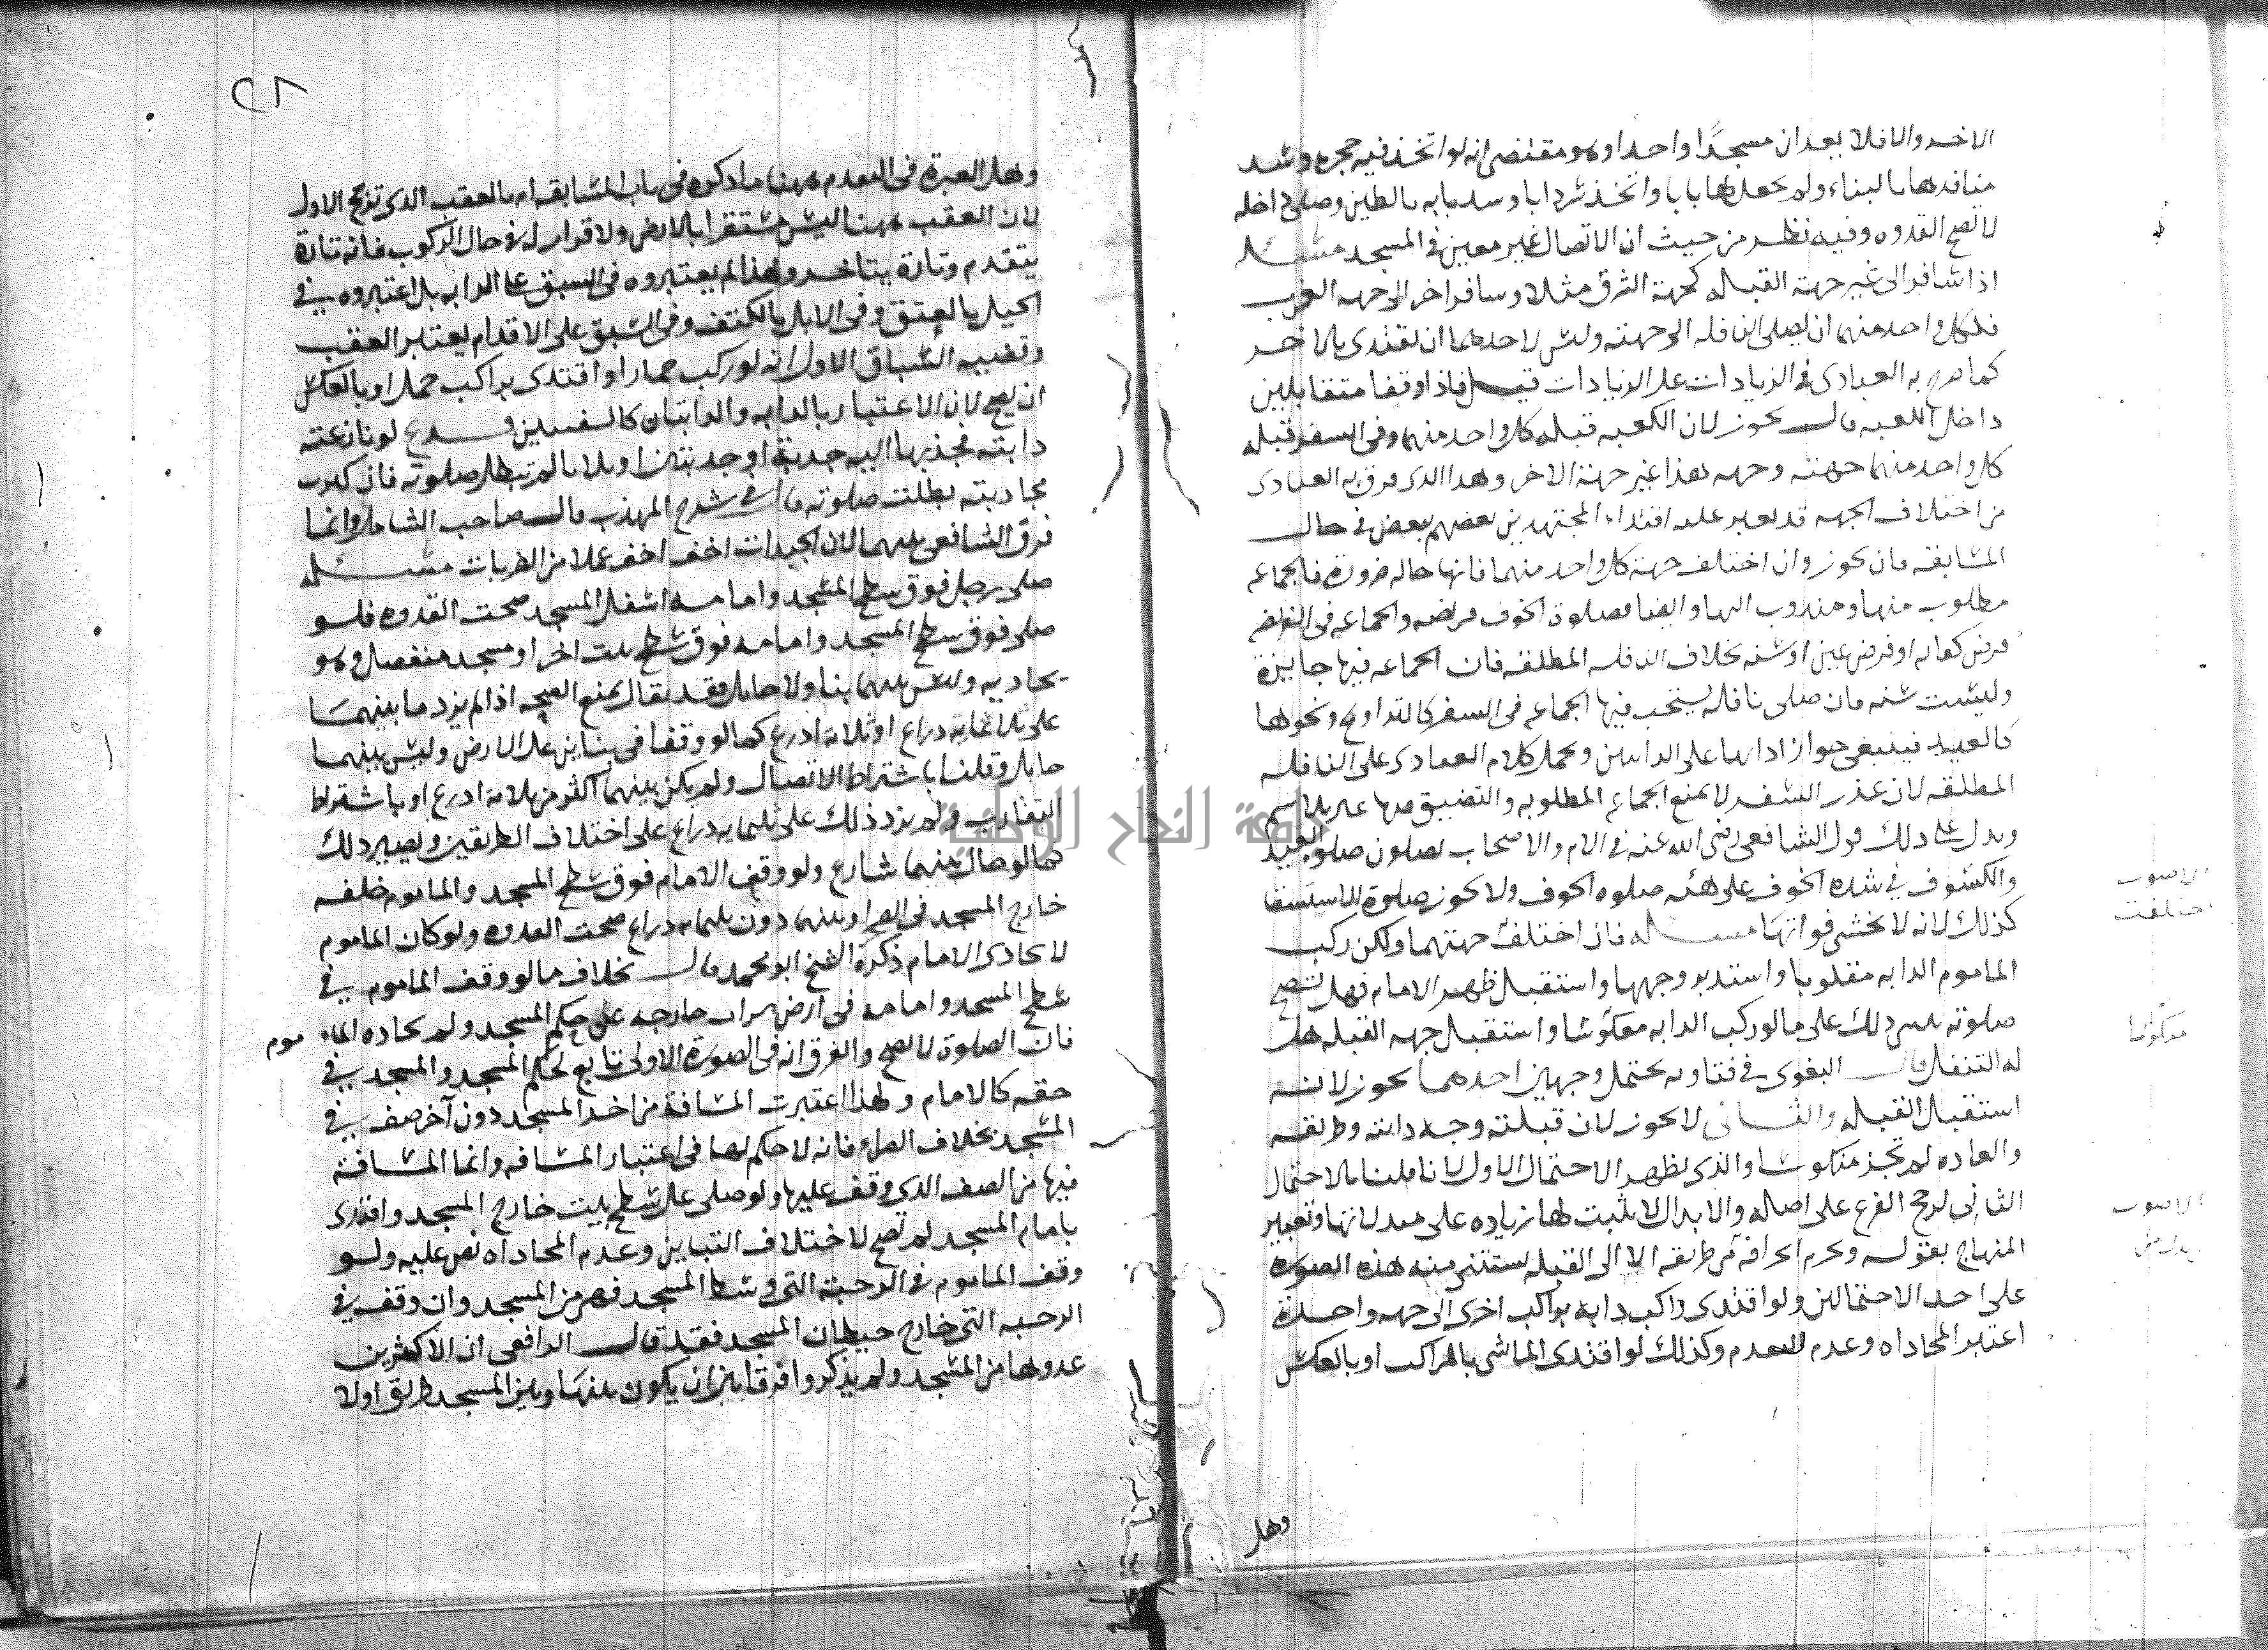 الاخر والا فلا يعدان مسجدًا واحدا وهو مقتضى انه لو اتخذ فيه حجره وسد
منافدها بالبناء ولم يجعل لها بابا واتخذ سردابا وسد بابه بالطين وصلى داخله
لا تصح القدوه وفيه نظر من حيث ان الاتصال غير معين في المسجد مسئله
اذا سافر الى غير جهة القبله كجهة الشرق مثلا وسافر اخر الى جهه الغرب
فلكل واحد منهما ان يصلى النافله الى جهته وليس لاحدهما ان يقتدى بالاخر
كما صرح به العبادى في الزيادات على الزيادات قيل فاذا وقفا متقابلين
داخل الكعبه قال يجوز لان الكعبه قبله كل واحد منهما وفى السفر قبله
كل واحد منهما جهته وجهه هذا غير جهة الاخر وهذا الذى فرق به العبادى
من اختلاف الجهه قد يعبر عليه اقتداء المجتهدين بعضهم ببعض في حال
المسابقه فان يجوز وان اختلف جهة كل واحد منهما فانها حاله ضرورة فالجماعه
مطلوب منها ومندوب اليها وايضا فصلوة الخوف فريضه والجماعه فى الفرائض
فرض كفايه او فرض عين او سنه بخلاف النافله المطلقه فان الجماعه فيها جايزة
وليست سنه فان صلى نافله يستحب فيها الجماعه فى السفر كالتراويح ونحوها
كالعيد فينبغى جواز ادائها على الدابتين ويحمل كلام العبادى على النافله
المطلقه لان عذر السفر لا يمنع الجماعه المطلوبه والتضييق فيها
ويدل على ذلك قول الشافعى رضى الله عنه في الام والاصحاب يصلون صلوة العيد
والكسوف في شده الخوف على هئه صلوه الخوف ولا يجوز صلوة الاستسقا
كذلك لانه لا يخشى فواتها مسئله فان اختلف جهتهما ولكن ركب
الماموم الدابه مقلوبا واستدبر وجهها واستقبل ظهر الامام فهل تصح
صلوته يبنى ذلك على ما لو ركب الدابه معكوسا واستقبل جهه القبله هل
له التنفل قال البغوى في فتاويه يحتمل وجهين احدهما يجوز لانه
استقبل القبله والثانى لا يجوز لان قبلته وجه دابته وطريقه
والعاده لم تجز منكوسا والذى يظهر الاحتمال الاول لانا ان قلنا بالاحتمال
الثانى لرجح الفرع على اصاله والابدال لا يثبت لها زياده على مبدلاتها وتعبير
المنهاج بقوله ويحرم انحرافه عن طريقه الا الى القبله يستثنى منه هذه الصوره
على احد الاحتمالين ولو اقتدى راكب دابه براكب اخرى الى جهه واحدة
اعتبر المحاداه وعدم التقدم وكذلك لو اقتدى الماشى بالراكب او بالعكس
وهل
الاصوب
اختلفت
معكوسا
الاصوب
٢٨
وهل العبرة فى التقدم ههنا ما ذكروه فى باب المسابقه ام بالعقب الذى ترجح الاول
لان العقب ههنا ليس مستقرا بالارض ولا قرار له في حال الركوب فانه تارة
يتقدم وتارة يتاخر ولهذا لم يعتبروه فى السبق على الدابه بل اعتبروه في
الخيل بالعتق وفى الابل بالكتف وفى السبق على الاقدام يعتبر العقب
وقضيه السباق الاول انه لو ركب حمارا واقتدى براكب جمل او بالعكس
ان يصح لان الاعتبار بالدابه والدابتان كالسفينتين فرع لو نازعته
دابته فجذبها اليه جذبة او جذبتين او ثلاثا لم تبطل صلوته فان كثرت
مجاذبته بطلت صلوته قال في شرح المهذب قال صاحب الشامل وانما
فرق الشافعى بينهما لان الجبذات اخف اخف عملا من الضربات مسئله
صلى رجل فوق سطح المسجد وامامه اسفل المسجد صحت القدوه فلو
صلى فوق سطح المسجد وامامه فوق سطح بيت اخر او مسجد منفصل وهو
يحاديه وليس بينهما بنا ولا حايل فقد يقال يمنع الصحه اذا لم يزد ما بينهما
على ثلاثمايه دراع او ثلاثة ادرع كما لو وقفا فى بنائين على الارض وليس بينهما
حايل وقلنا باشتراط الاتصال ولم يكن بينهما اكثر من ثلاثة ادرع او باشتراط
التقارب ولم يزد ذلك على ثلثمايه دراع على اختلاف الطريقين ويصير ذلك
كما لو حال بينهما شارع ولو وقف الامام فوق سطح المسجد والماموم خلفه
خارج المسجد فى الصحرا وبينهما دون ثلثمايه دراع صحت القدوه ولو كان الماموم
لا يحادى الامام ذكره الشيخ ابو محمد قال بخلاف ما لو وقف الماموم في
سطح المسجد وامامه فى ارض خارجه على حكم المسجد ولم يحاده الماموم
فان الصلوة لا تصح والفرق انه فى الصورة الاولى تابع لحكم المسجد والمسجد في
حقه كالامام ولهذا اعتبرت المسافة من اخر المسجد دون آخر صف في
المسجد بخلاف الصحراء فانه لا حكم لها فى اعتبار المسافه وانما المسافة
فيها من الصف الذى وقف عليها ولو صلى على سطح بيت خارج المسجد واقتدى
بامام المسجد لم تصح لاختلاف التباين وعدم المحاداه نص عليه ولو
وقف الماموم في الرحبة التى وسط المسجد فهى من المسجد وان وقف في
الرحبه التى خارج حيطان المسجد فقد قال الرافعى ان الاكثرين
عدوها من المسجد ولم يذكروا فرقا بين ان يكون بينها وبين المسجد طريق اولا
جامعة النجاح الوطنية